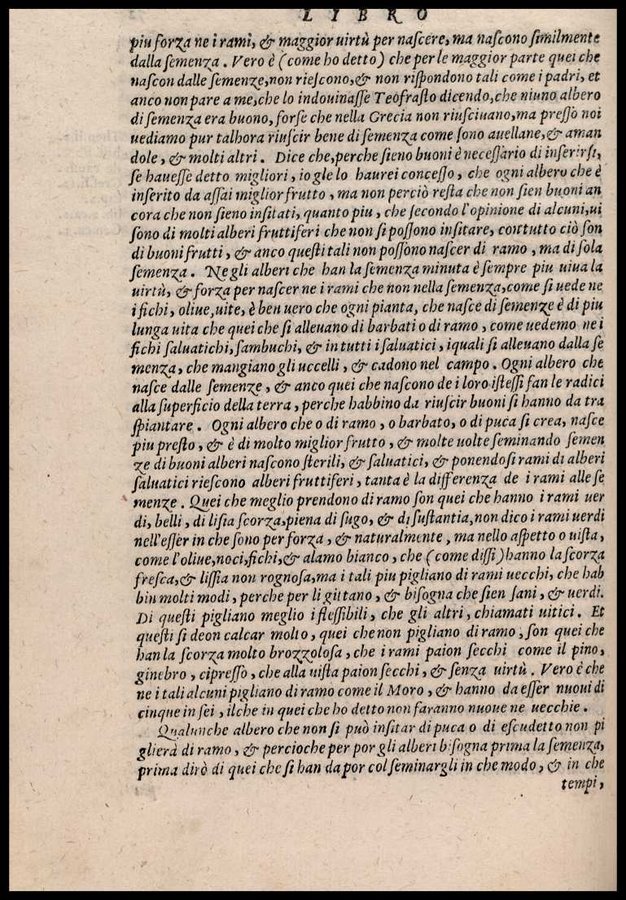 LIBRO
piu forza ne i rami, & maggior virtù per naſcere, ma naſcono ſimilmente
dalla ſemenza. Vero è (come ho detto) che per le maggior parte quei che
naſcon dalle ſemenze, non rieſcono, & non riſpondono tali come i padri, et
anco non pare a me, che lo indouinaſſe Teofraſto dicendo, che niuno albero
di ſemenza era buono, forſe che nella Grecia non riuſciuano, ma preſſo noi
uediamo pur talhora riuſcir bene di ſemenza come ſono auellane, & aman
dole, & molti altri. Dice che, perche ſieno buoni è neceſſario di inſerirſi,
ſe haueſſe detto migliori, io gle lo haurei conceſſo, che ogni albero che è
inſerito da aſſai miglior frutto, ma non perciò reſta che non ſien buoni an
cora che non ſieno inſitati, quanto piu, che ſecondo l'opinione di alcuni, ui
ſono di molti alberi fruttiferi che non ſi poſſono inſitare, contutto ciò ſon
di buoni frutti, & anco queſti tali non poſſono naſcer di ramo, ma di ſola
ſemenza. Negli alberi che han la ſemenza minuta è ſempre piu uiua la
uirtù, & forza per naſcer ne i rami che non nella ſemenza, come ſi uede ne
i fichi, oliue, uite, è ben uero che ogni pianta, che naſce di ſemenze è di piu
lunga uita che quei che ſi alleuano di barbati o di ramo, come uedemo ne i
fichi ſaluatichi, ſambuchi, & in tutti i ſaluatici, iquali ſi alleuano dalla ſe
menza, che mangiano gli uccelli, & cadono nel campo. Ogni albero che
naſce dalle ſemenze, & anco quei che naſcono de i loro iſteſſi fan le radici
alla ſuperficio della terra, perche habbino da riuſcir buoni ſi hanno da tra
ſpiantare. Ogni albero che o di ramo, o barbato, o di puca ſi crea, naſce
piu preſto, & è di molto miglior frutto, & molte uolte ſeminando ſemen
ze di buoni alberi naſcono ſterili, & ſaluatici, & ponendoſi rami di alberi
ſaluatici rieſcono alberi fruttiferi, tanta è la differenza de i rami alle ſe
menze. Quei che meglio prendono di ramo ſon quei che hanno i rami uer
di, belli, di liſia ſcorza, piena di ſugo, & di ſuſtantia, non dico i rami uerdi
nell'eſſer in che ſono per forza, & naturalmente, ma nello aſpetto o uiſta,
come l'oliue, noci, fichi, & alamo bianco, che (come diſſi) hanno la ſcorza
freſca, & liſſia non rognoſa, ma i tali piu pigliano di rami uecchi, che hab
bin molti modi, perche per li gittano, & biſogna che ſien ſani, & uerdi.
Di queſti pigliano meglio i fleſſibili, che gli altri, chiamati uitici. Et
queſti ſi deon calcar molto, quei che non pigliano di ramo, ſon quei che
han la ſcorza molto brozzoloſa, che i rami paion ſecchi come il pino,
ginebro, cipreſſo, che alla uiſta paion ſecchi, & ſenza uirtù. Vero è che
ne i tali alcuni pigliano di ramo come il Moro, & hanno da eſſer nuoui di
cinque in ſei, ilche in quei che ho detto non faranno nuoue ne uecchie.
Qualunche albero che non ſi può inſitar di puca o di eſcudetto non pi
glierà di ramo, & percioche per por gli alberi biſogna prima la ſemenza,
prima dirò di quei che ſi han da por col ſeminargli in che modo, & in che
tempi,